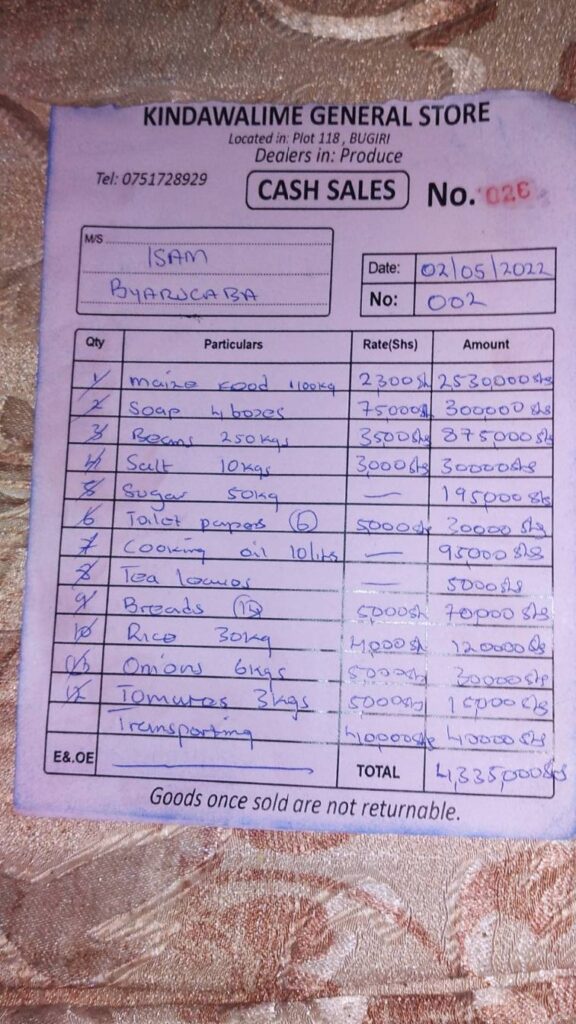 KINDAWALIME GENERAL STORE
Located in: Plot 118, BUGIRI
Dealers in: Produce
Tel: 0751728929
CASH SALES No. 026
M/S ISAM
BYARUGABA
Date: 02/05/2022
No: 002
Qty Particulars Rate(Shs) Amount
1 maize food 1100kg 2300sh 2530000shs
2 Soap 4 boxes 75000sh 300000shs
3 Beans 250kgs 3500shs 875000shs
4 Salt 10kgs 3000shs 30000shs
5 Sugar 50kg — 195000shs
6 Toilet papers (6) 5000shs 30000shs
7 Cooking oil 10lits — 95000shs
8 Tea leaves — 5000shs
9 Breads 5000sh 70,000shs
10 Rice 30kg 4000sh 120000shs
11 Onions 6kgs 5000shs 30000shs
12 Tomatoes 3kgs 5000shs 15000shs
Transporting 40000shs 40000shs
E&.OE TOTAL 4,335,000shs
Goods once sold are not returnable.